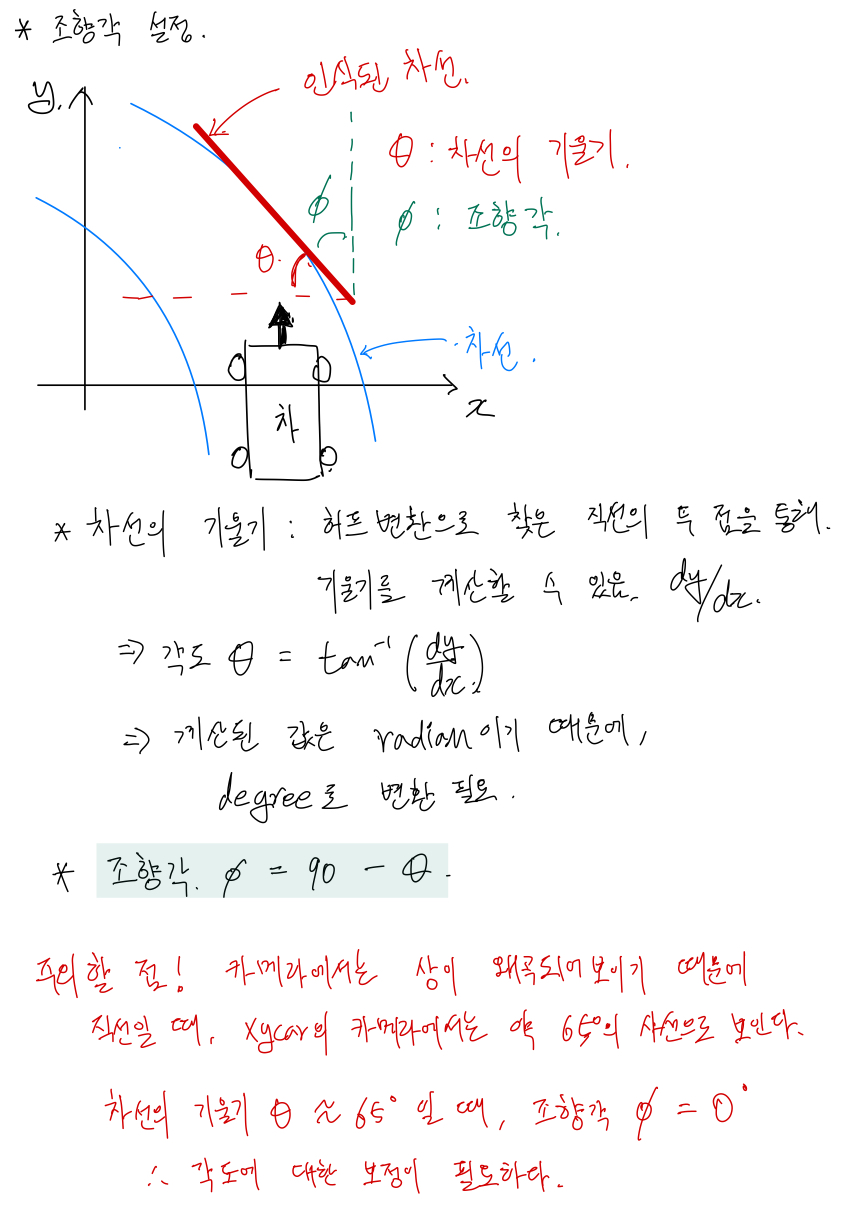 * 조향각 설정.
인식된 차선.
y.
θ : 차선의 기울기.
φ
φ : 조향각.
θ.
차선.
x
차
* 차선의 기울기 : 허프변환으로 찾은 직선의 두 점을 통해.
기울기를 계산할 수 있음. dy/dx.
⇒ 각도 θ = tan⁻¹(dy/dx.)
⇒ 계산된 값은 radian이기 때문에,
degree로 변환 필요.
* 조향각. φ = 90 - θ.
주의할 점! 카메라에서는 상이 왜곡되어보이기 때문에
직선일 때, xycar의 카메라에서는 약 65°의 사선으로 보인다.
차선의 기울기 θ ≈ 65° 일 때, 조향각 φ = 0°
∴ 각도에 대한 보정이 필요하다.